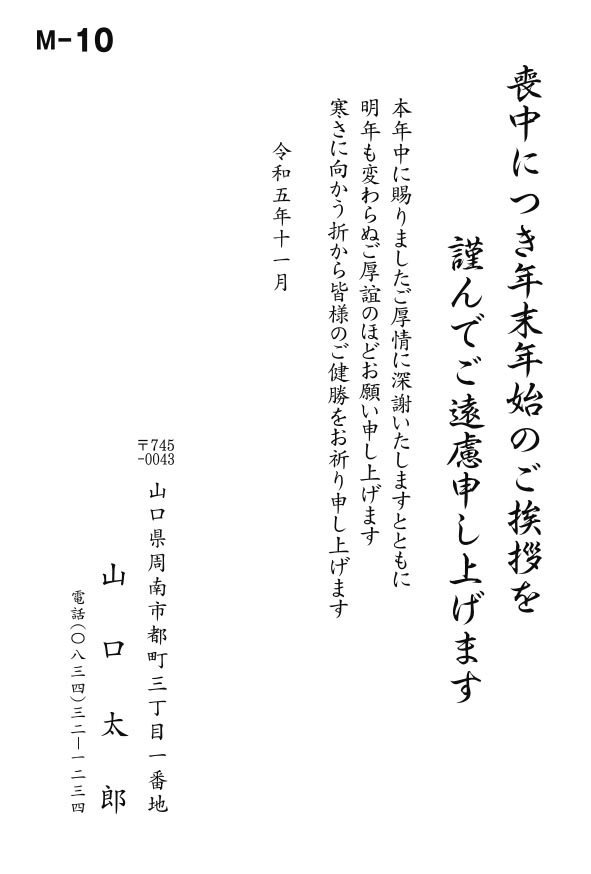 M-10
喪中につき年末年始のご挨拶を
謹んでご遠慮申し上げます
本年中に賜りましたご厚情に深謝いたしますとともに
明年も変わらぬご厚誼のほどお願い申し上げます
寒さに向かう折から皆様のご健勝をお祈り申し上げます
令和五年十一月
〒745
-0043
山口県周南市都町三丁目一番地
山口太郎
電話(〇八三四)三二―一二三四